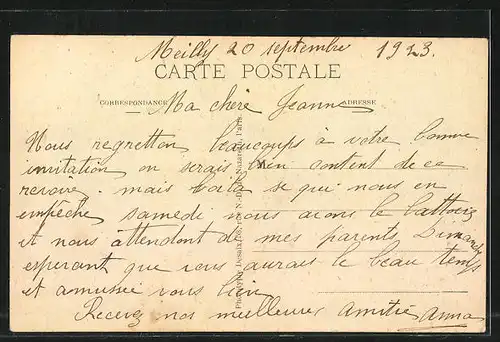 Meilly 20 septembre 1923.
CARTE POSTALE
CORRESPONDANCE
ADRESSE
Ma chère Jeanne
Nous regretton beaucoups à votre bonne
invitation on serais bien content de ce
revoir. mais voila se qui nous en
empêche samedi nous avons le battoir
et nous attendont de mes parents Dimanche
esperant que vous aurais le beau temps
et amussée vous bien
Recevez nos meilleures amitié Anna